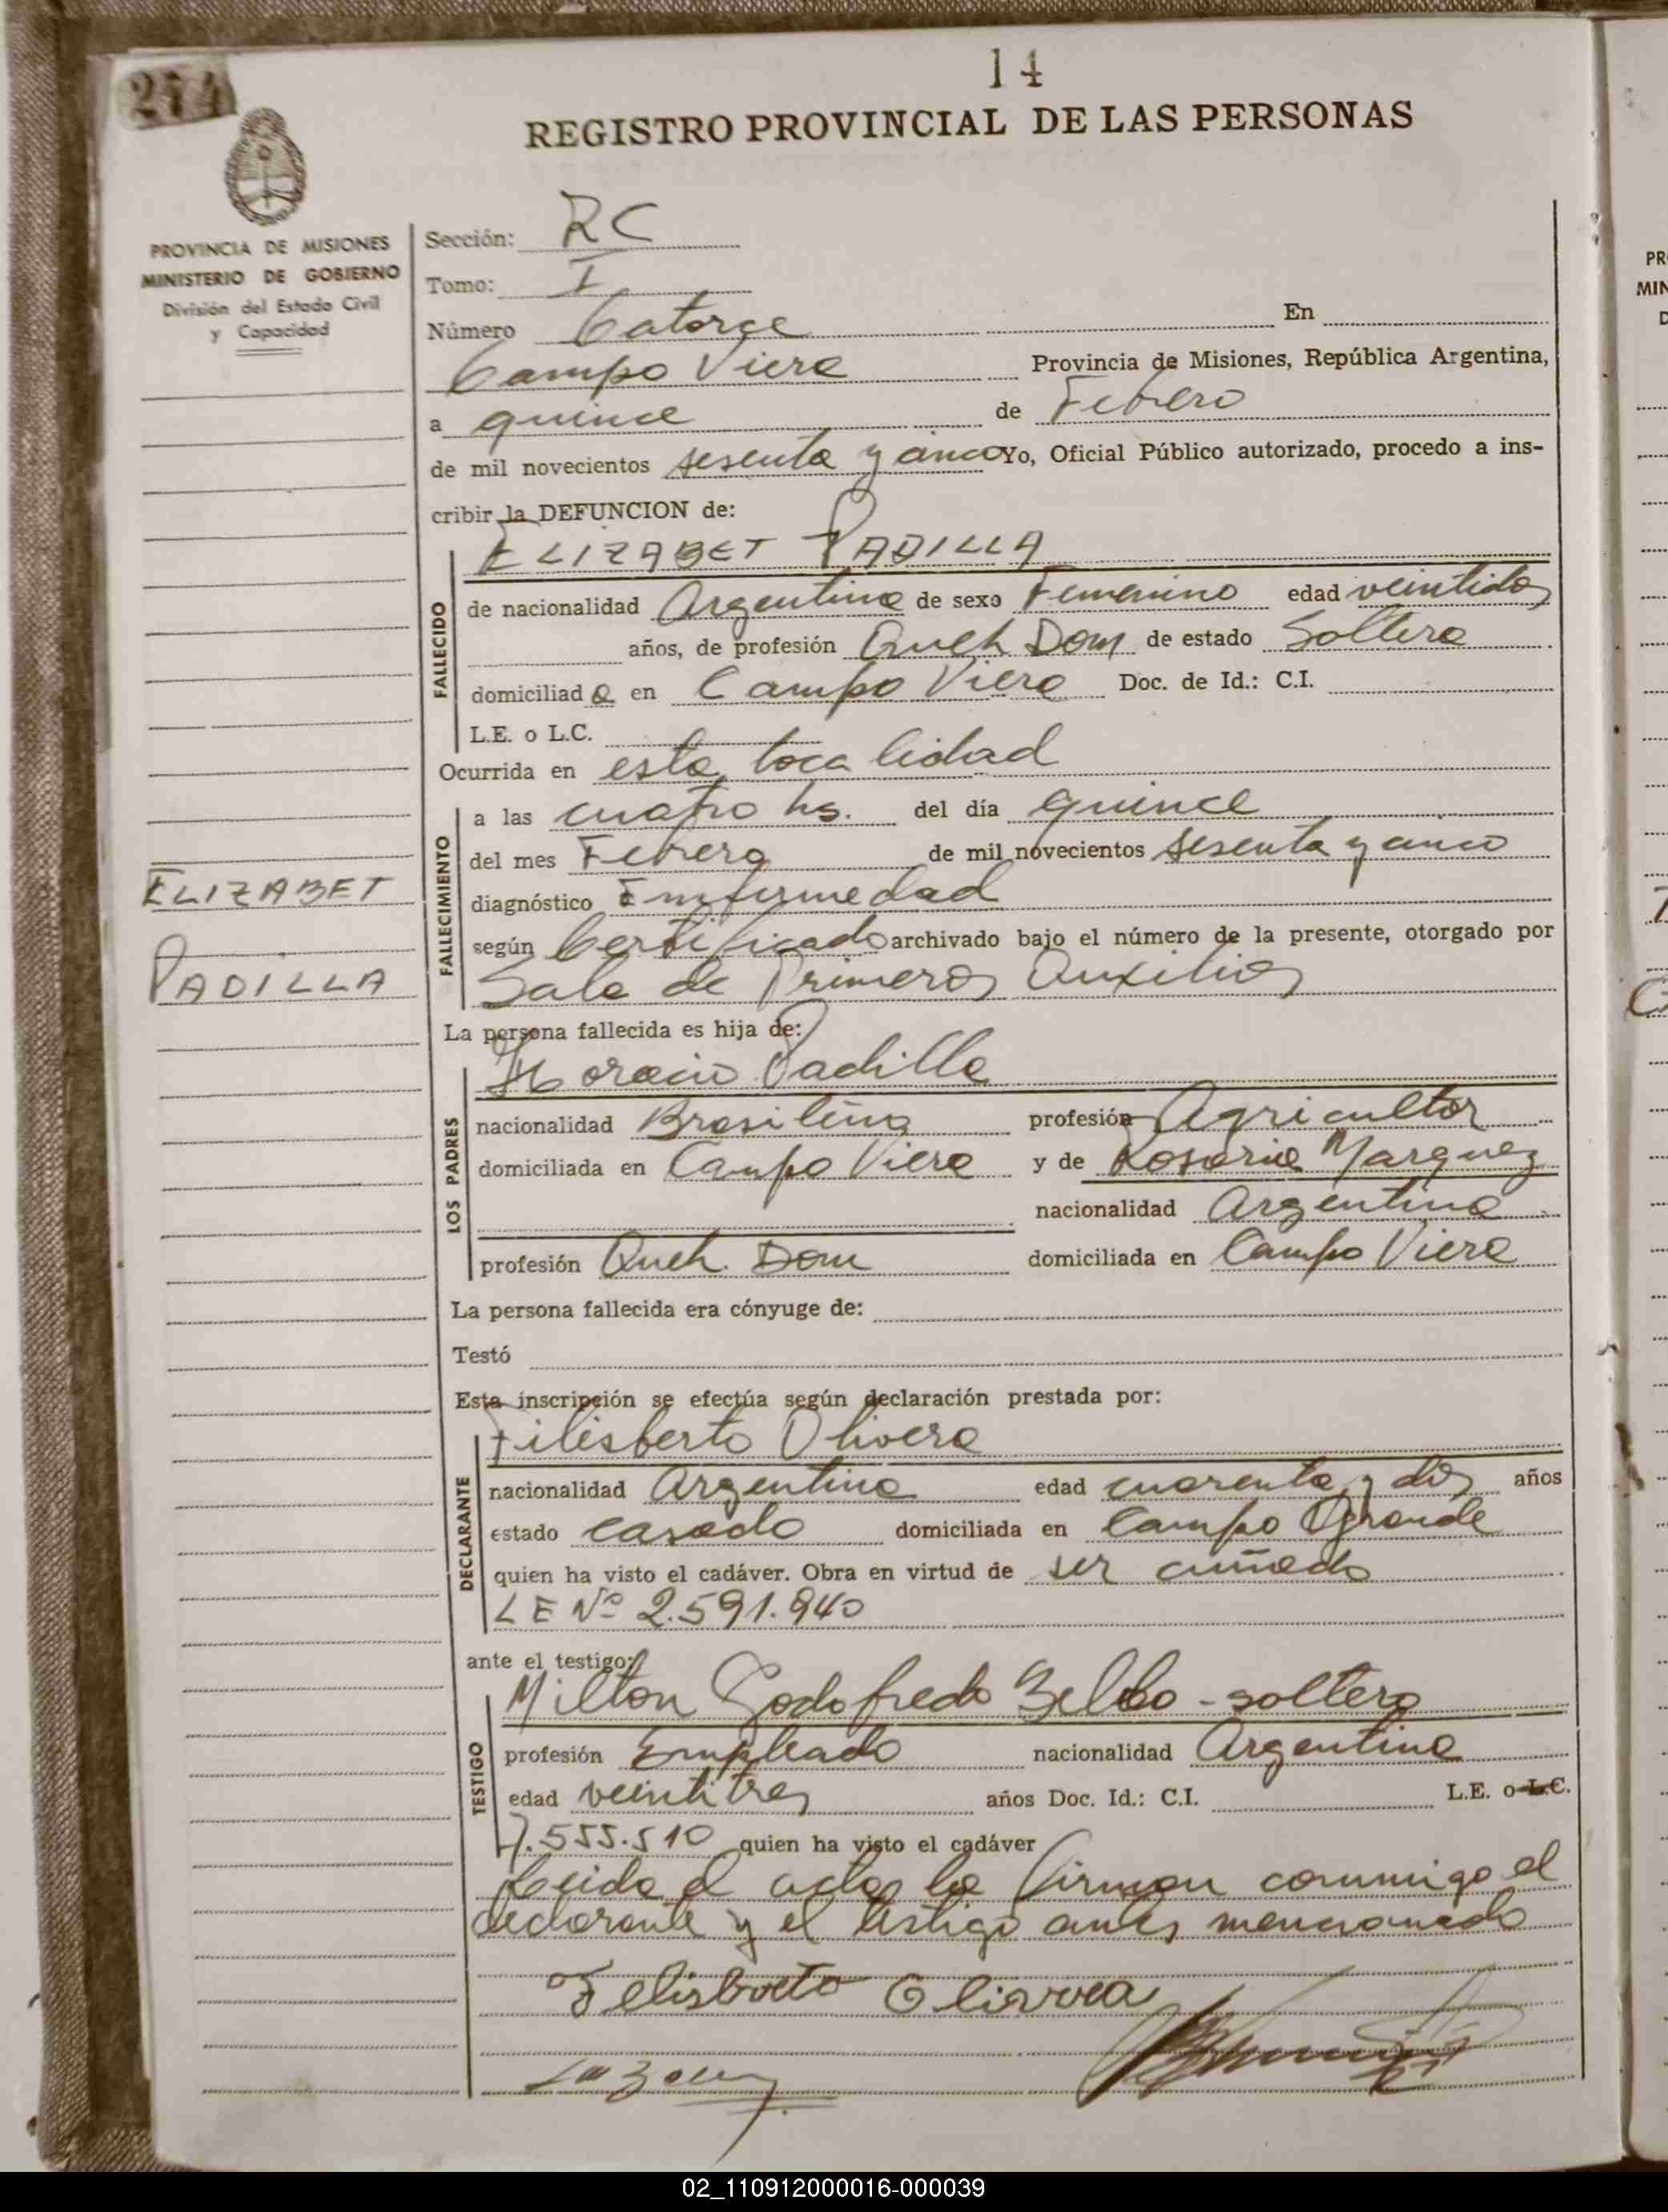 274
14
REGISTRO PROVINCIAL DE LAS PERSONAS
PROVINCIA DE MISIONES
MINISTERIO DE GOBIERNO
División del Estado Civil
y Capacidad
ELIZABET
PADILLA
Sección: RC
Tomo: I
Número Catorce En
Campo Viera Provincia de Misiones, República Argentina,
a quince de Febrero
de mil novecientos sesenta y cinco Yo, Oficial Público autorizado, procedo a ins-
cribir la DEFUNCION de:
FALLECIDO
ELIZABET PADILLA
de nacionalidad Argentina de sexo Femenino edad veintidos
años, de profesión Queh Dom de estado Soltera
domiciliad a en Campo Viera Doc. de Id.: C.I.
L.E. o L.C.
Ocurrida en esta localidad
FALLECIMIENTO
a las cuatro hs. del día quince
del mes Febrero de mil novecientos sesenta y cinco
diagnóstico Emfermedad
según Certificado archivado bajo el número de la presente, otorgado por
Sala de Primeros Auxilios
La persona fallecida es hija de:
LOS PADRES
Horacio Padilla
nacionalidad Brasilera profesión Agricultor
domiciliada en Campo Viera y de Rosaria Marquez
nacionalidad Argentina
profesión Queh. Dom domiciliada en Campo Viera
La persona fallecida era cónyuge de:
Testó
Esta inscripción se efectúa según declaración prestada por:
DECLARANTE
Filisberto Olivera
nacionalidad Argentina edad cuarenta y dos años
estado casado domiciliada en Campo Grande
quien ha visto el cadáver. Obra en virtud de ser cuñado
LE Nº 2.591.940
ante el testigo:
TESTIGO
Milton Godofredo - soltero
profesión Empleado nacionalidad Argentina
edad veintitres años Doc. Id.: C.I. L.E. o L.C.
7.555.510 quien ha visto el cadáver
Leida el acta la firman conmigo el
declarante y el testigo antes mencionado
Felisberto